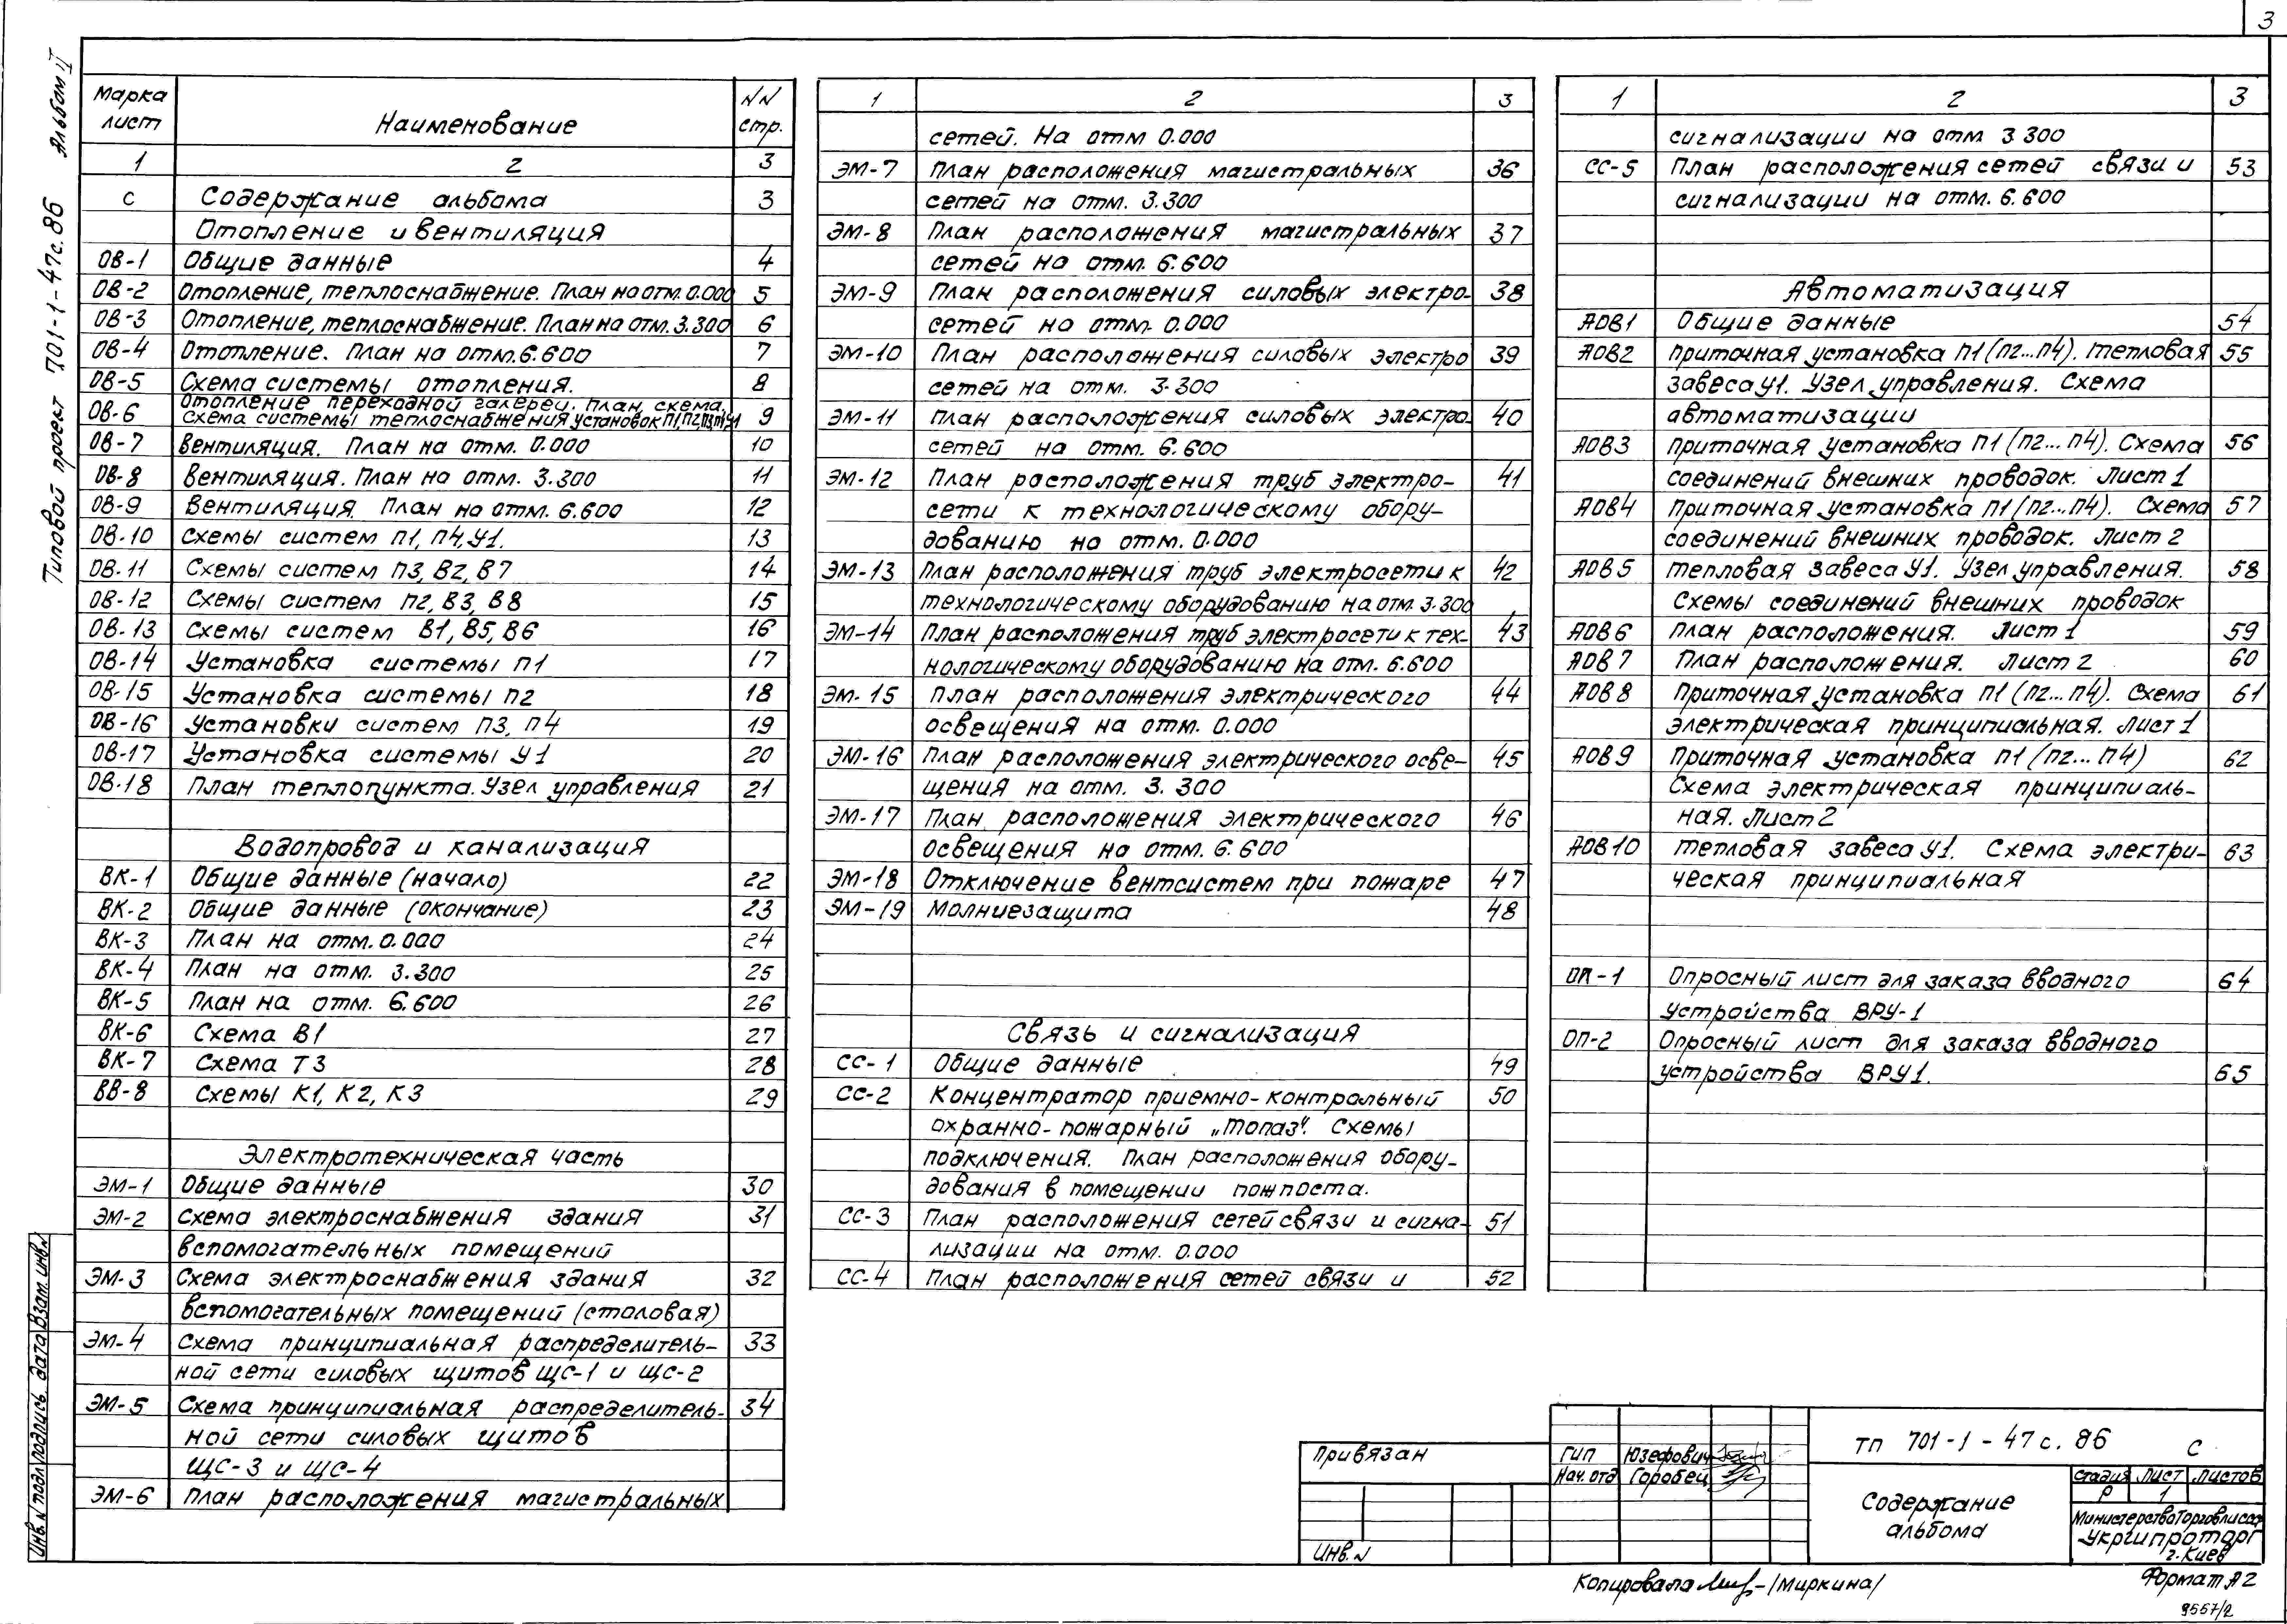 3
Альбом II
Типовой проект 701-1-47с.86
Марка лист
Наименование
NN стр.
1 2 3
С Содержание альбома 3
Отопление и вентиляция
ОВ-1 Общие данные 4
ОВ-2 Отопление, теплоснабжение. План на отм. 0.000 5
ОВ-3 Отопление, теплоснабжение. План на отм. 3.300 6
ОВ-4 Отопление. План на отм. 6.600 7
ОВ-5 Схема системы отопления. 8
Отопление переходной галереи. План, схема,
ОВ-6 схема системы теплоснабжения установок П1, П2, П3, П4, У1 9
ОВ-7 Вентиляция. План на отм. 0.000 10
ОВ-8 Вентиляция. План на отм. 3.300 11
ОВ-9 Вентиляция. План на отм. 6.600 12
ОВ-10 Схемы систем П1, П4, У1. 13
ОВ-11 Схемы систем П3, В2, В7 14
ОВ-12 Схемы систем П2, В3, В8 15
ОВ-13 Схемы систем В1, В5, В6 16
ОВ-14 Установка системы П1 17
ОВ-15 Установка системы П2 18
ОВ-16 Установки систем П3, П4 19
ОВ-17 Установка системы У1 20
ОВ-18 План теплопункта. Узел управления 21
Водопровод и канализация
ВК-1 Общие данные (начало) 22
ВК-2 Общие данные (окончание) 23
ВК-3 План на отм. 0.000 24
ВК-4 План на отм. 3.300 25
ВК-5 План на отм. 6.600 26
ВК-6 Схема В1 27
ВК-7 Схема Т3 28
ВВ-8 Схемы К1, К2, К3 29
Электротехническая часть
ЭМ-1 Общие данные 30
ЭМ-2 Схема электроснабжения здания 31
вспомогательных помещений
ЭМ-3 Схема электроснабжения здания 32
вспомогательных помещений (столовая)
ЭМ-4 Схема принципиальная распределитель- 33
ной сети силовых щитов ЩС-1 и ЩС-2
ЭМ-5 Схема принципиальная распределитель- 34
ной сети силовых щитов
ЩС-3 и ЩС-4
ЭМ-6 План расположения магистральных
1 2 3
сетей. На отм 0.000
ЭМ-7 План расположения магистральных 36
сетей на отм. 3.300
ЭМ-8 План расположения магистральных 37
сетей на отм. 6.600
ЭМ-9 План расположения силовых электро- 38
сетей на отм. 0.000
ЭМ-10 План расположения силовых электро 39
сетей на отм. 3.300
ЭМ-11 План расположения силовых электро- 40
сетей на отм. 6.600
ЭМ-12 План расположения труб электро- 41
сети к технологическому обору-
дованию на отм. 0.000
ЭМ-13 План расположения труб электросети к 42
технологическому оборудованию на отм. 3.300
ЭМ-14 План расположения труб электросети к тех- 43
нологическому оборудованию на отм. 6.600
ЭМ-15 План расположения электрического 44
освещения на отм. 0.000
ЭМ-16 План расположения электрического осве- 45
щения на отм. 3.300
ЭМ-17 План расположения электрического 46
освещения на отм. 6.600
ЭМ-18 Отключение вентсистем при пожаре 47
ЭМ-19 Молниезащита 48
Связь и сигнализация
СС-1 Общие данные 49
СС-2 Концентратор приемно-контрольный 50
охранно-пожарный „Топаз“. Схемы
подключения. План расположения обору-
дования в помещении пожпоста.
СС-3 План расположения сетей связи и сигна- 51
лизации на отм. 0.000
СС-4 План расположения сетей связи и 52
1 2 3
сигнализации на отм 3.300
СС-5 План расположения сетей связи и 53
сигнализации на отм. 6.600
Автоматизация
АОВ1 Общие данные 54
АОВ2 Приточная установка П1 (П2...П4). Тепловая 55
завеса У1. Узел управления. Схема
автоматизации
АОВ3 Приточная установка П1 (П2...П4). Схема 56
соединений внешних проводок. Лист 1
АОВ4 Приточная установка П1 (П2...П4). Схема 57
соединений внешних проводок. Лист 2
АОВ5 Тепловая завеса У1. Узел управления. 58
Схемы соединений внешних проводок
АОВ6 План расположения. Лист 1 59
АОВ7 План расположения. Лист 2 60
АОВ8 Приточная установка П1 (П2...П4). Схема 61
электрическая принципиальная. Лист 1
АОВ9 Приточная установка П1 (П2...П4) 62
Схема электрическая принципиаль-
ная. Лист 2
АОВ10 Тепловая завеса У1. Схема электри- 63
ческая принципиальная
ОП-1 Опросный лист для заказа вводного 64
устройства ВРУ-1
ОП-2 Опросный лист для заказа вводного
устройства ВРУ1. 65
Инв. N подл Подпись. дата Взам. инв. N
Привязан
Инв. N
ГИП Юзефович
Нач. отд Горобец
ТП 701-1-47с.86 С
Содержание альбома
Стадия Лист Листов
Р 1
Министерство Торговли СССР
Укргипроторг
г. Киев
Копировала /Миркина/
Формат А2
9557/2